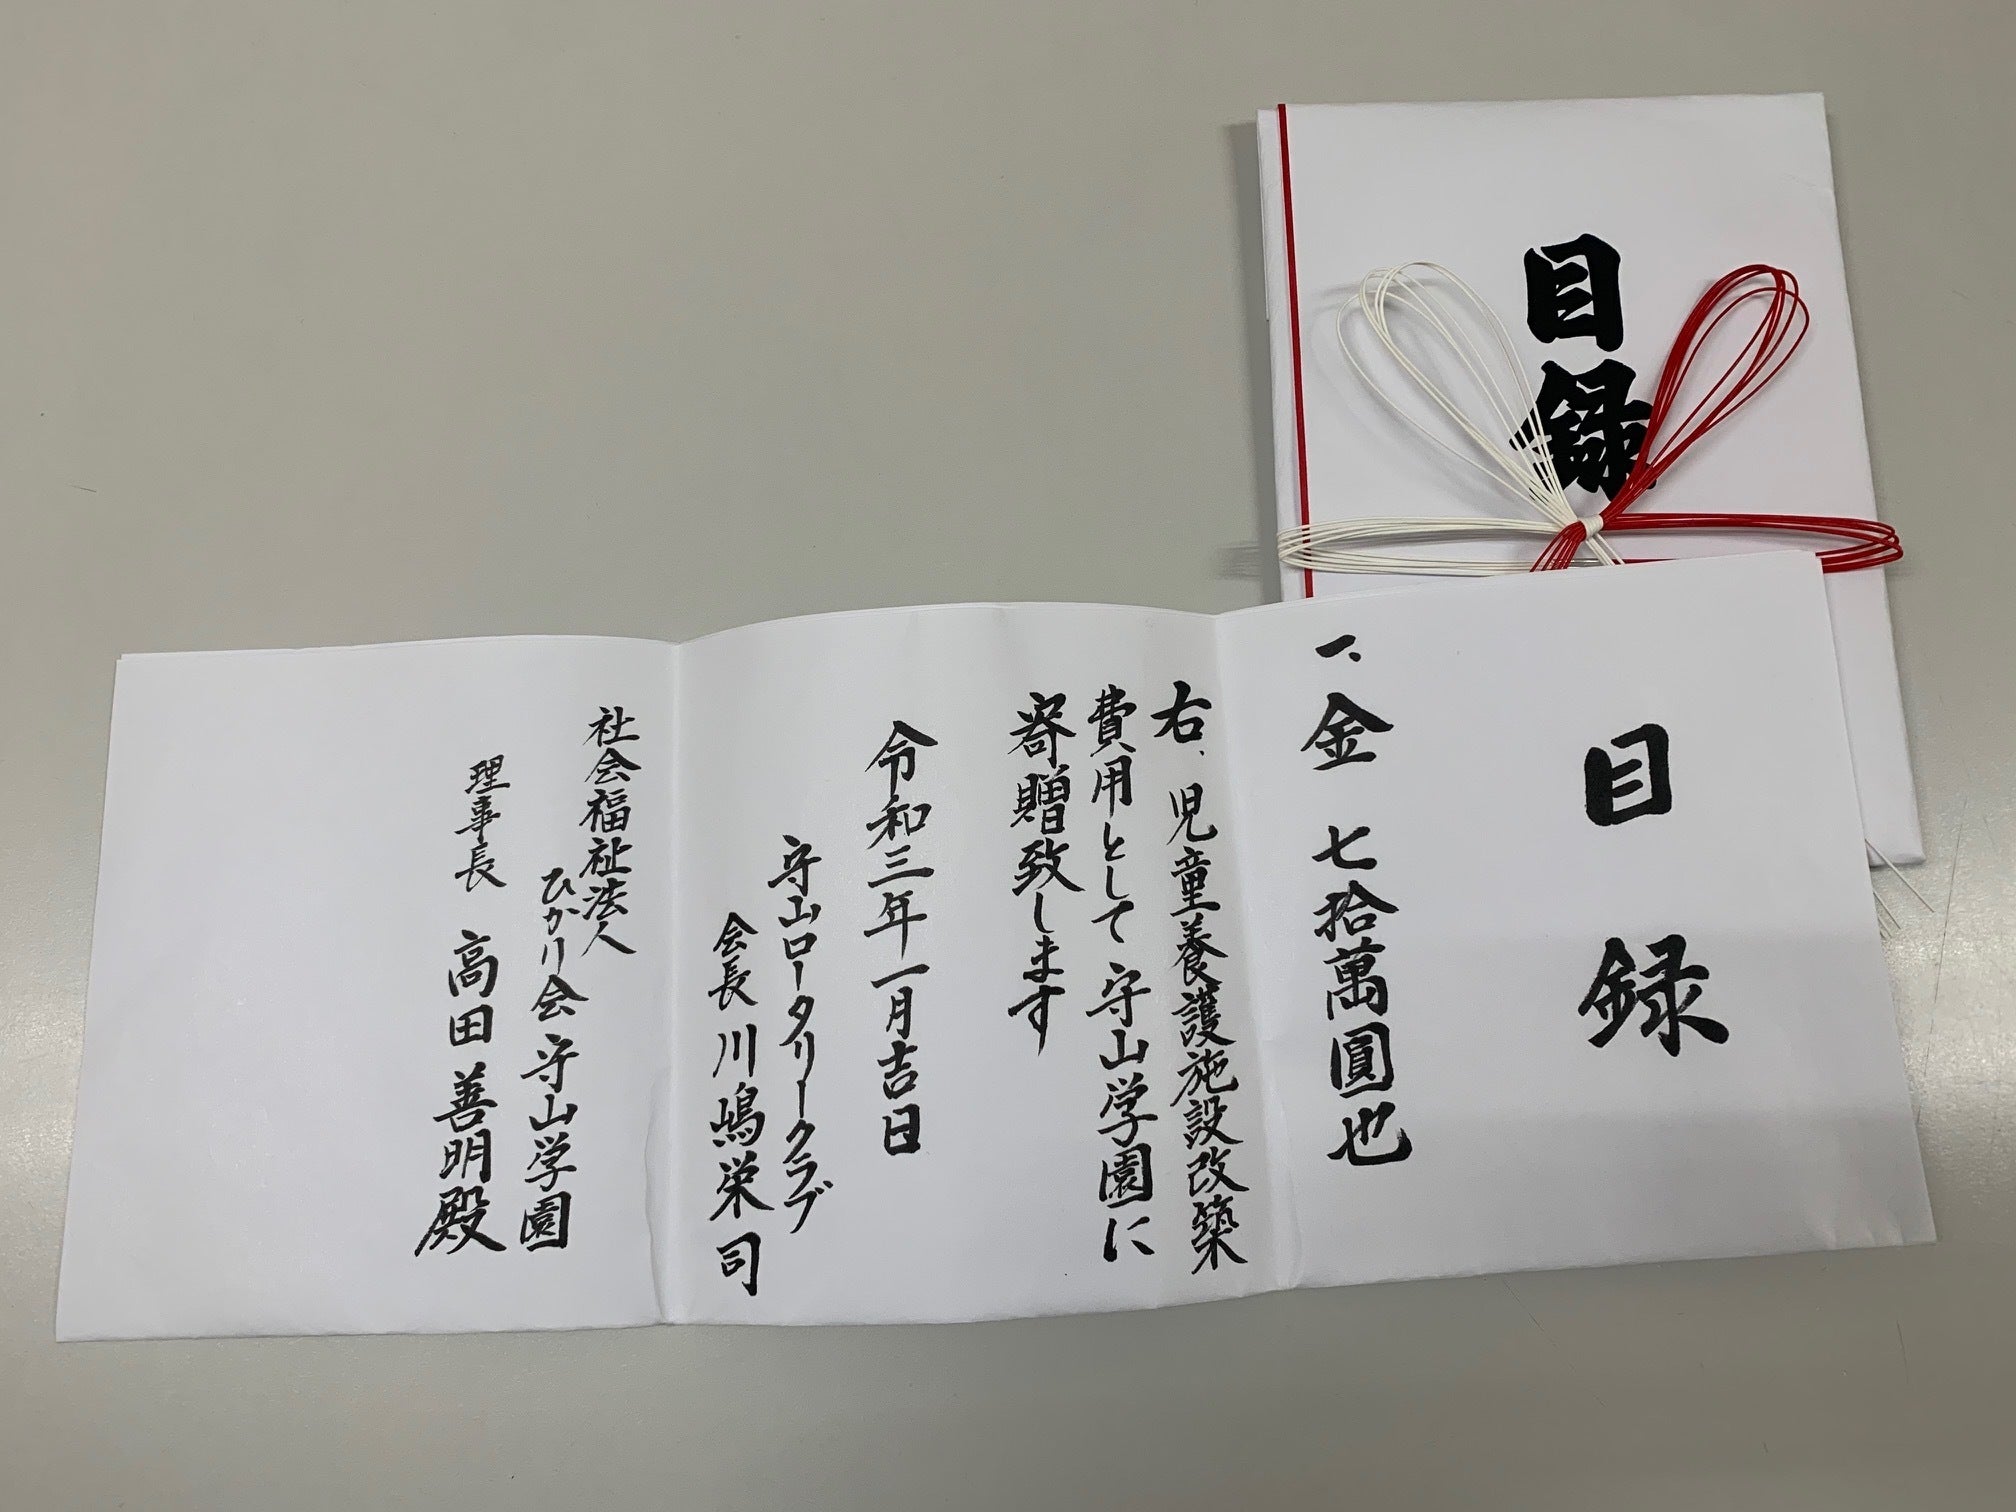 目録
目録
一、金 七拾萬圓也
右、児童養護施設改築
費用として守山学園に
寄贈致します
令和三年一月吉日
守山ロータリークラブ
会長 川嶋栄司
社会福祉法人
ひかり会 守山学園
理事長 高田善明殿